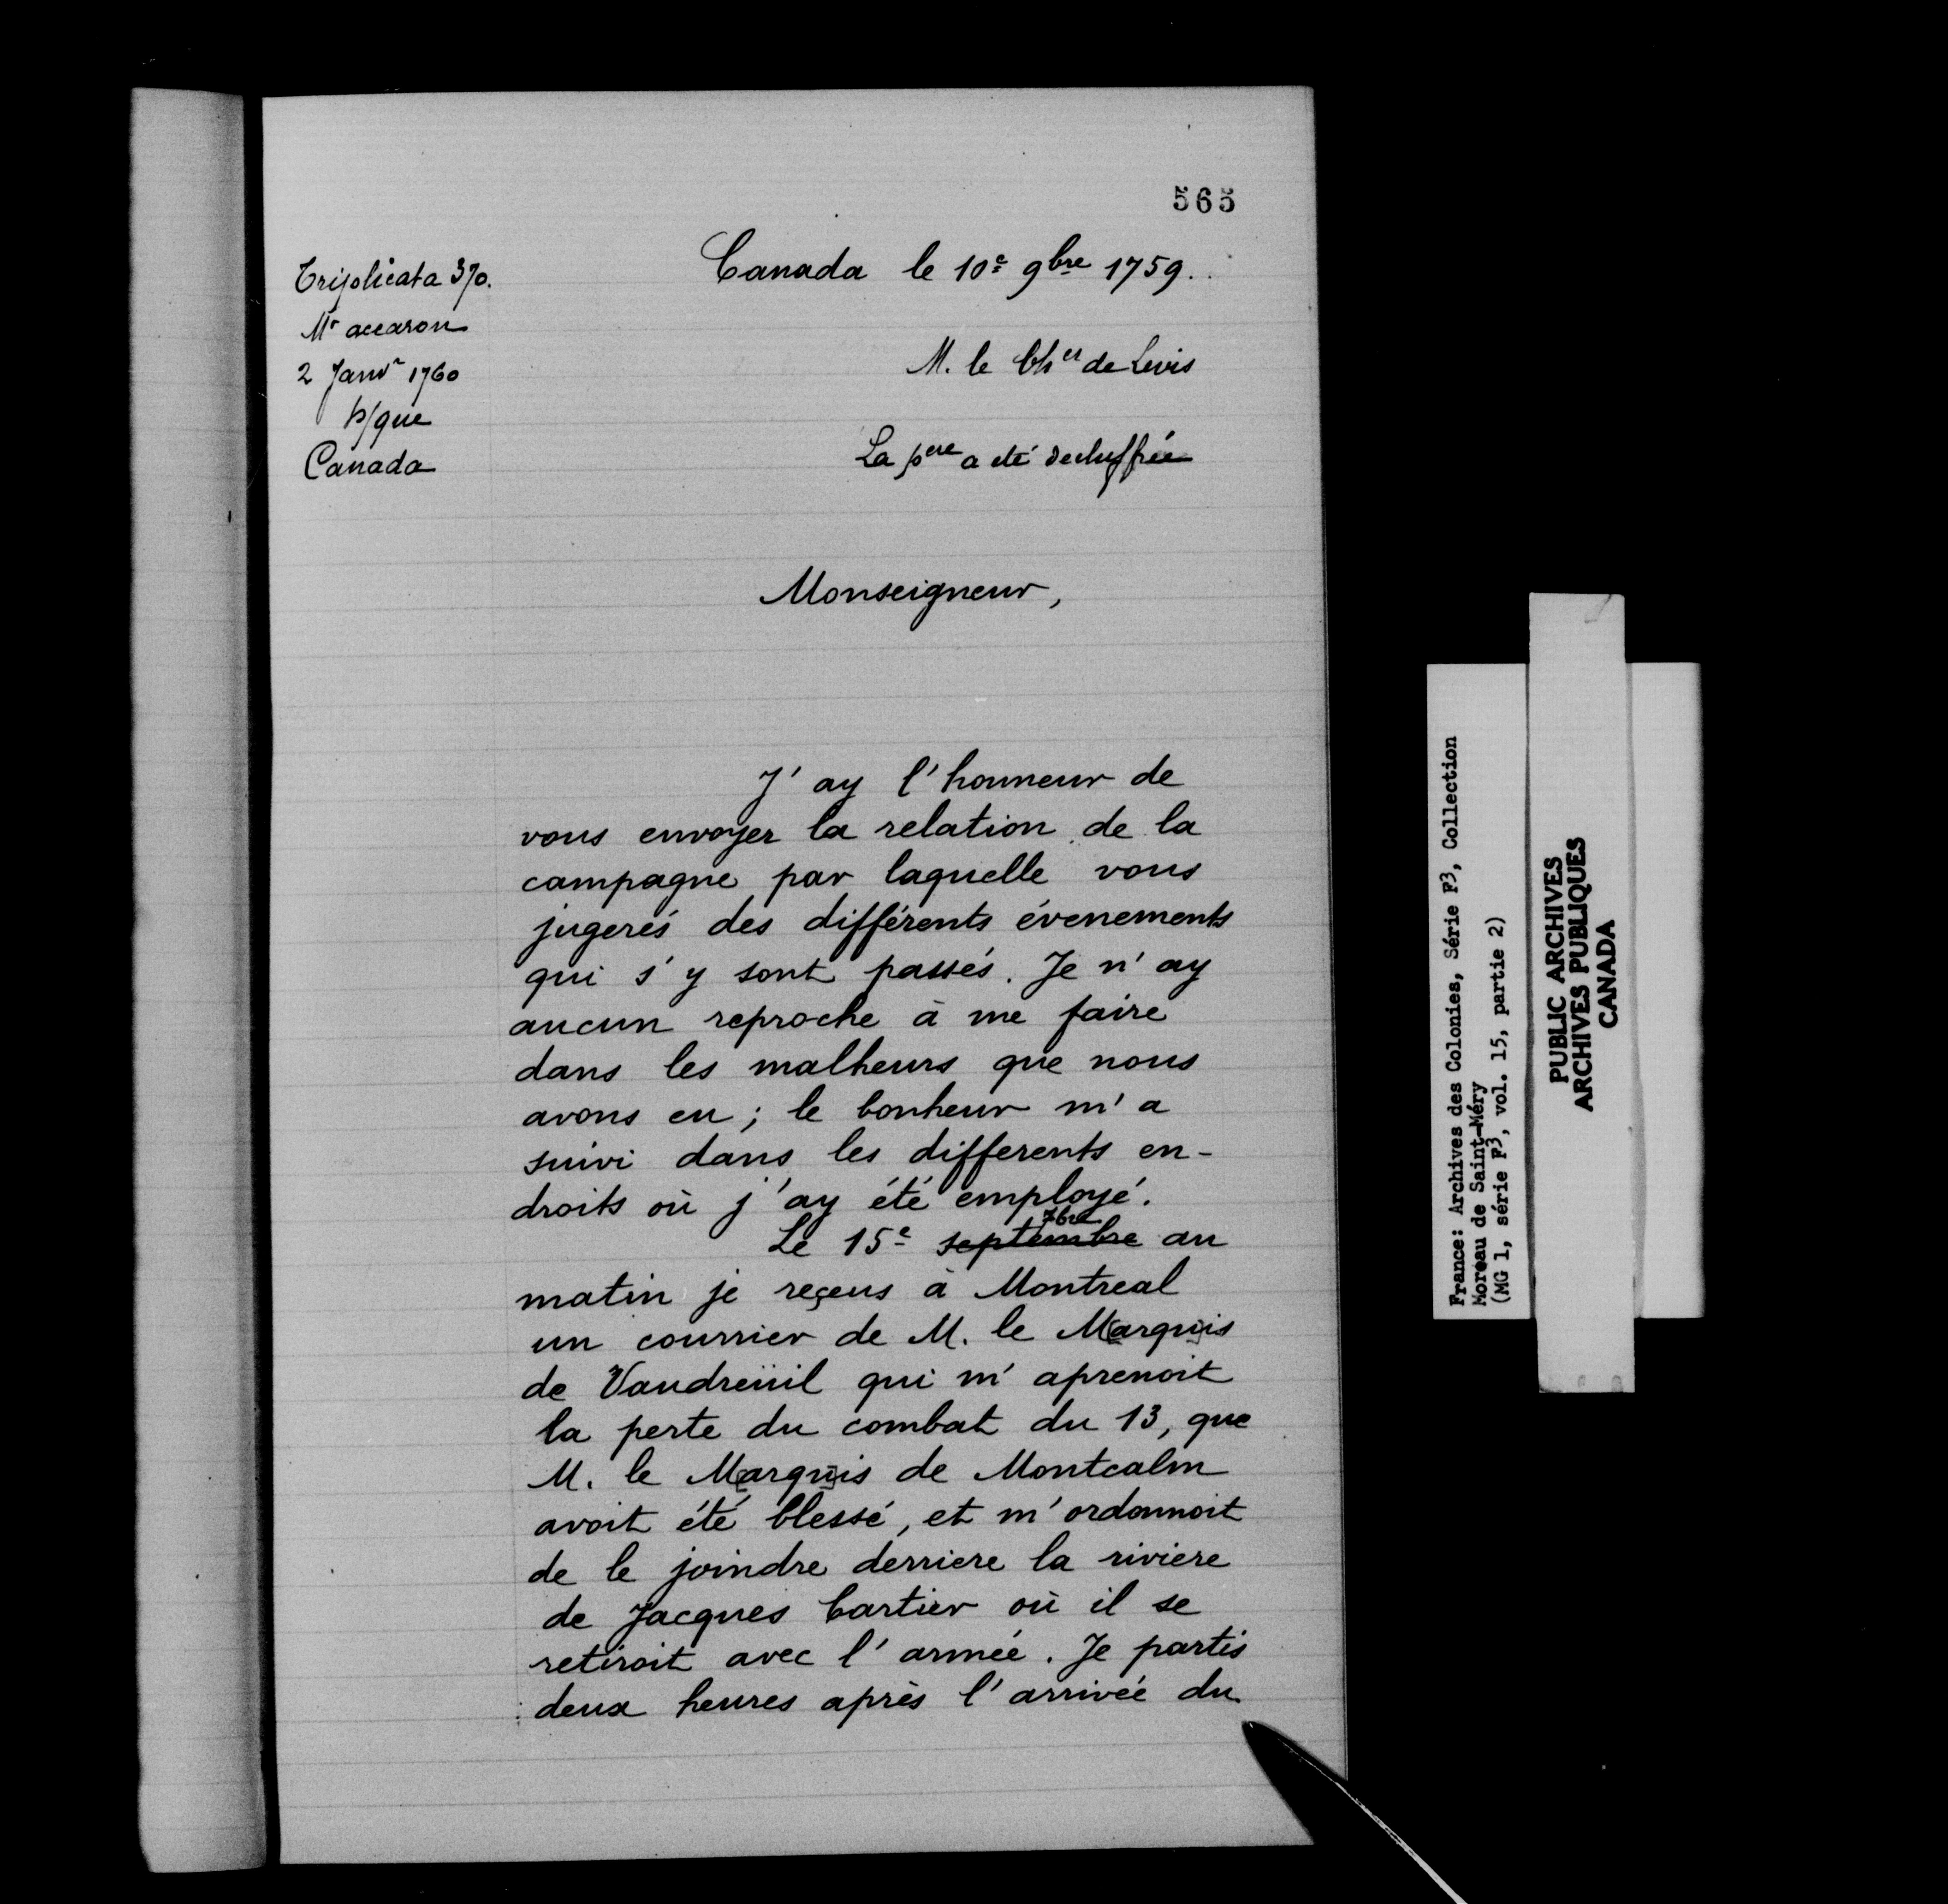 565
Canada le 10e 9bre 1759.
Triplicata 370.
Mr accaron
2 Janvr 1760
p/que
Canada
M. le Cher de Levis
La pere a eté dechiffrée
Monseigneur,
J'ay l'honneur de
vous envoyer la relation de la
campagne par laquelle vous
jugerés des différents évenements
qui s'y sont passés. Je n'ay
aucun reproche à me faire
dans les malheurs que nous
avons eu ; le bonheur m'a
suivi dans les differents en-
droits où j'ay été employé.
Le 15e septembre 7bre au
matin je reçeus à Montreal
un courrier de M. le M[arqu]is
de Vaudreüil qui m'aprenoit
la perte du combat du 13, que
M. le M[arqu]is de Montcalm
avoit été blessé, et m'ordonnoit
de le joindre derriere la riviere
de Jacques Cartier où il se
retiroit avec l'armée. Je partis
deux heures après l'arrivée du
France: Archives des Colonies, Série F3, Collection
Moreau de Saint-Méry
(MG 1, série F3, vol. 15, partie 2)
PUBLIC ARCHIVES
ARCHIVES PUBLIQUES
CANADA